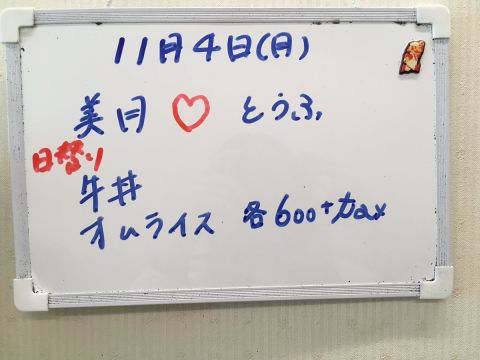 11月4日(月)
美月♡とうふ
日替り
牛丼
オムライス 各600+tax